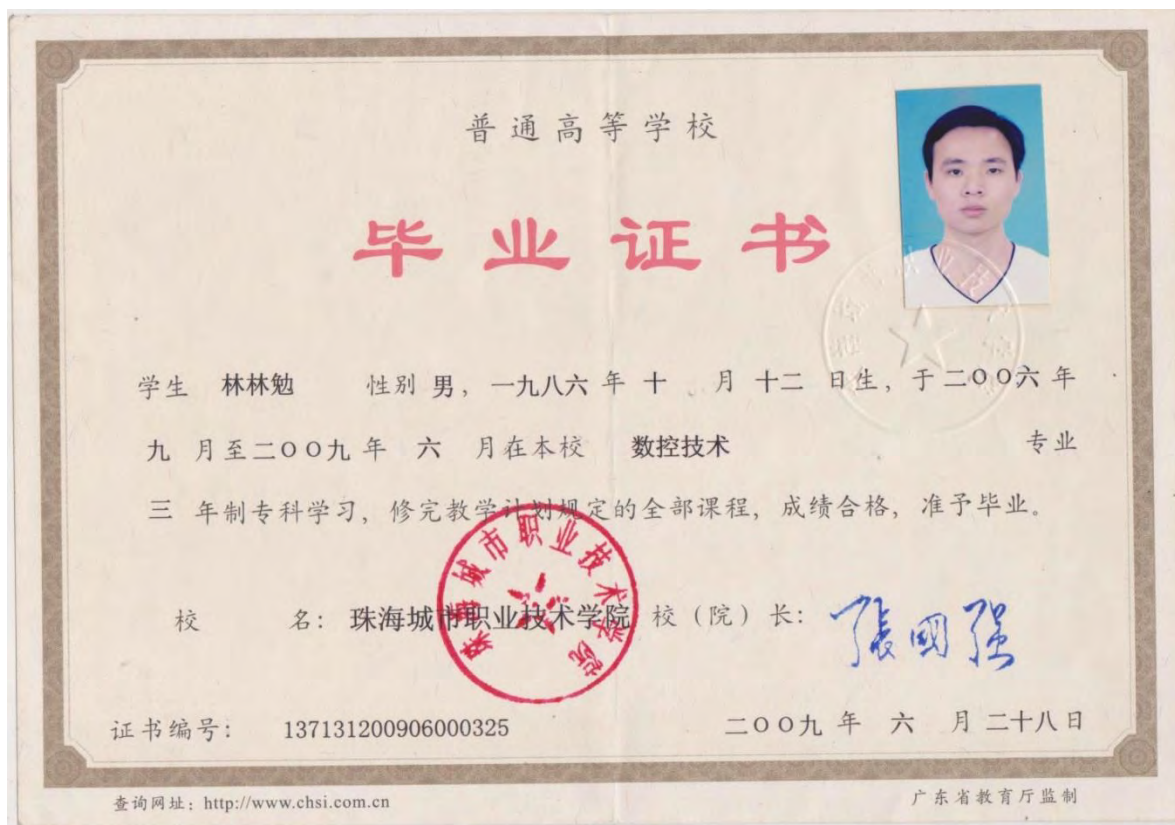 普通高等学校
毕业证书
学生 林林勉 性别 男，一九八六 年 十 月 十二 日生，于二〇〇六 年
九 月至二〇〇九 年 六 月在本校 数控技术 专业
三 年制专科学习，修完教学计划规定的全部课程，成绩合格，准予毕业。
校 名：珠海城市职业技术学院 校（院）长：張國强
珠海城市职业技术学院
证书编号： 137131200906000325 二〇〇九 年 六 月 二十八日
查询网址：http://www.chsi.com.cn 广东省教育厅监制